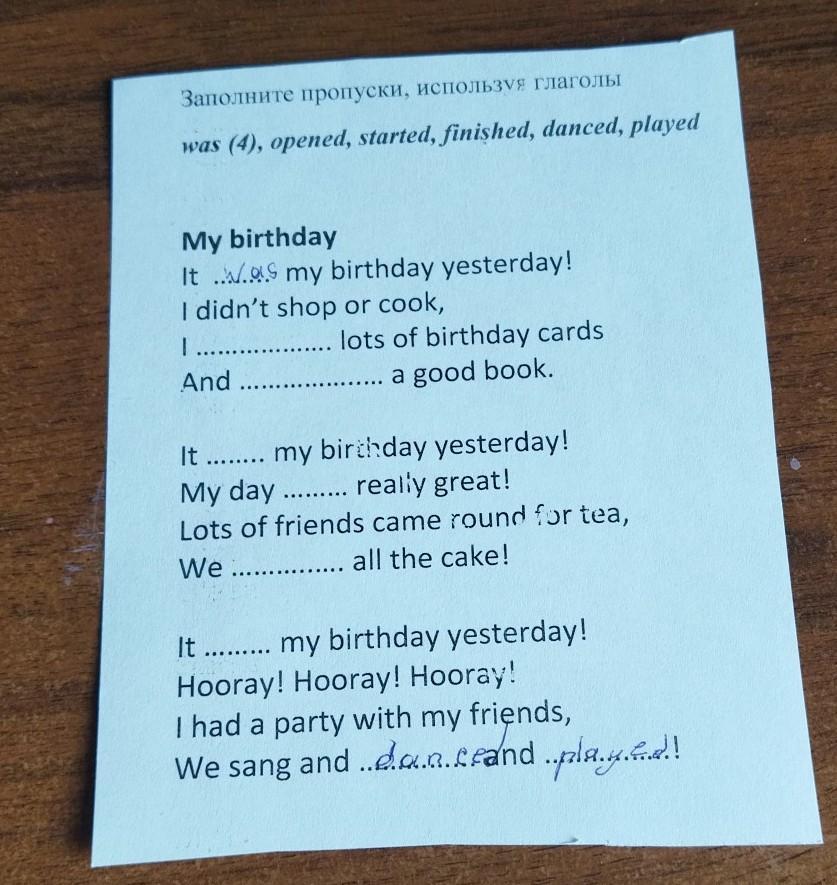 Заполните пропуски, используя глаголы
was (4), opened, started, finished, danced, played
My birthday
It ..was my birthday yesterday!
I didn't shop or cook,
I ................... lots of birthday cards
And .................... a good book.
It ........ my birthday yesterday!
My day ......... really great!
Lots of friends came round for tea,
We ............... all the cake!
It ......... my birthday yesterday!
Hooray! Hooray! Hooray!
I had a party with my friends,
We sang and ..danced and ..played.!